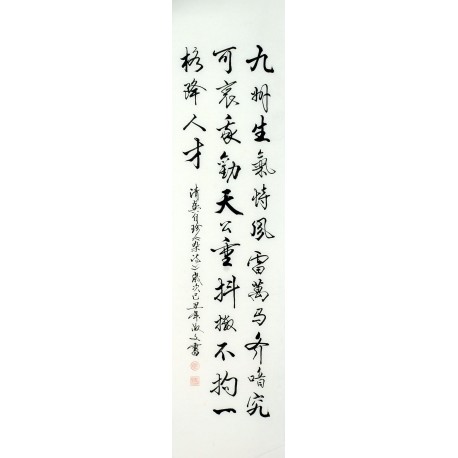 九州生氣恃風雷萬马齐喑究
可哀我勸天公重抖擞不拘一
格降人才
清龔自珍杂诗歲次己丑年文書